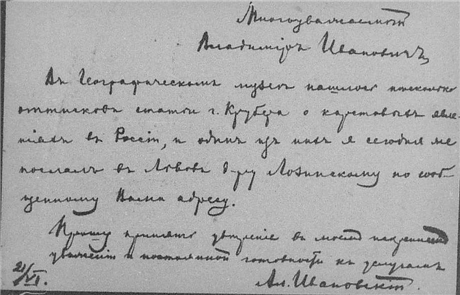 Многоуважаемый
Владимiръ Ивановичъ,
Въ Географическомъ музеѣ нашлось нѣсколько
оттисковъ статьи г. Крубера о карстовыхъ явле-
нiяхъ въ Россiи, и одинъ изъ нихъ я сегодня же
послалъ въ Львовъ д-ру Лозинскому по сооб-
щенному Вами адресу.
Прошу принять увѣренiе въ моемъ искреннемъ
уваженiи и постоянной готовности къ услугамъ
Ал. Ивановскiй.
21/VI.